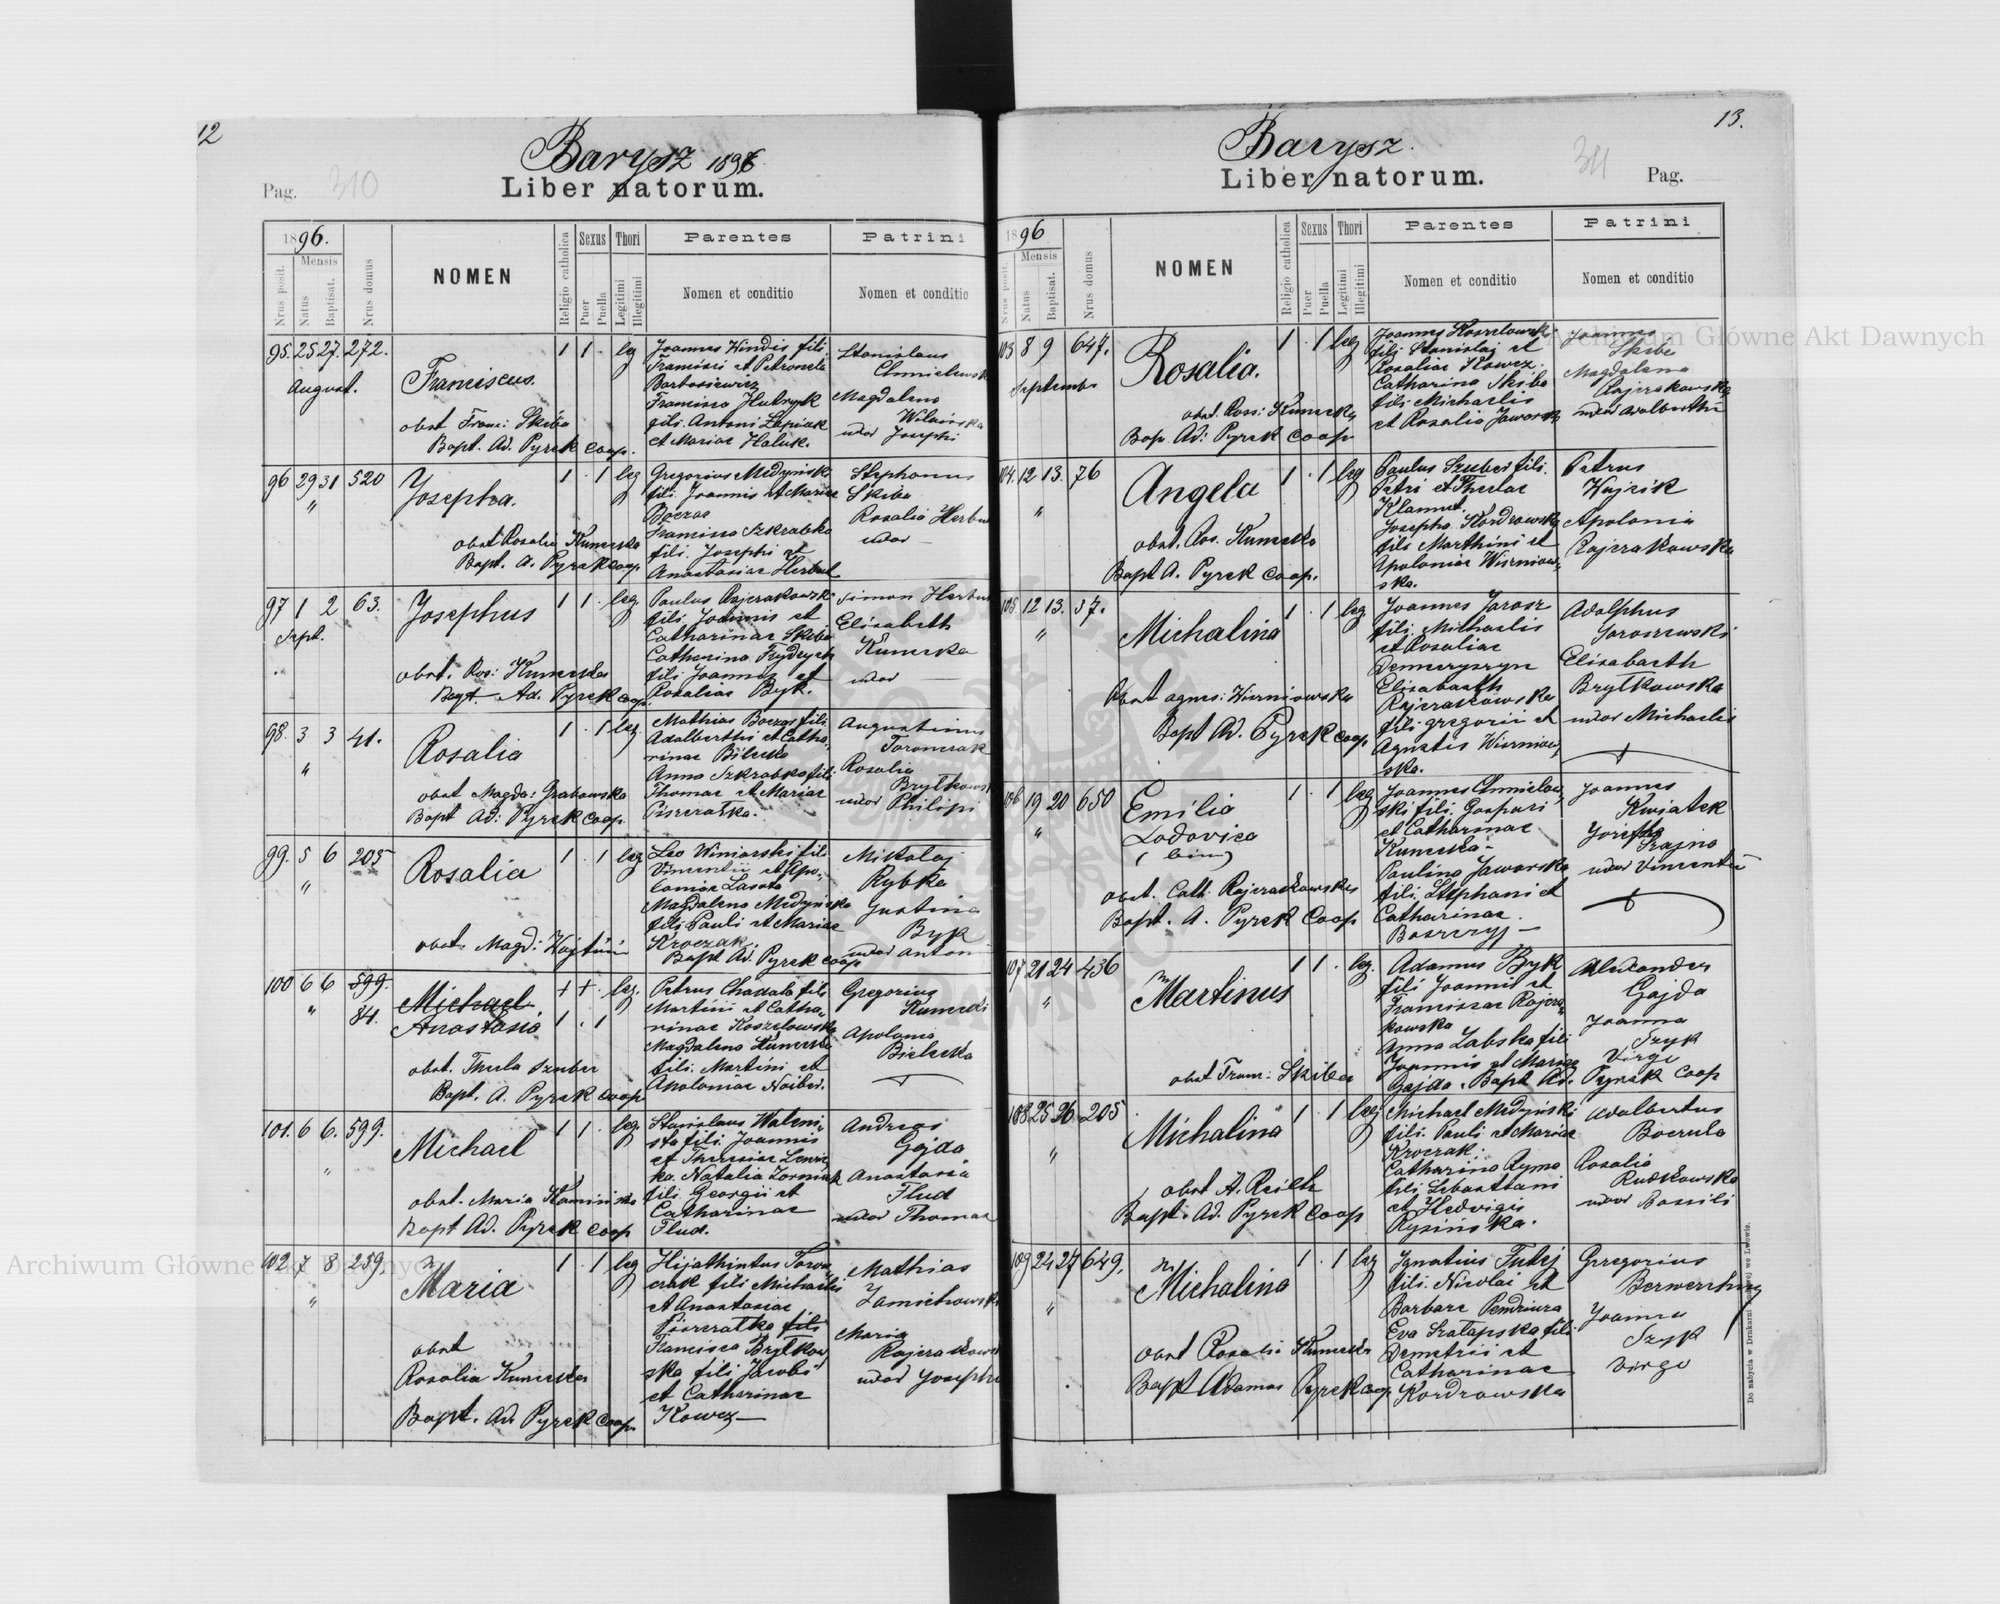 12
Barysz 1896
Pag. 310
Liber natorum.
1896.
Mensis
Nrus posit.
Natus
Baptisat.
Nrus domus
NOMEN
Religio catholica
Sexus
Puer
Puella
Thori
Legitimi
Illegitimi
Parentes
Nomen et conditio
Patrini
Nomen et conditio
95. 25 27. 272.
August.
Franciscus.
obst. Franc: Skiba
Bapt. Ad. Pyrek Coop.
1 1 . leg
Joannes Windis fili.
Francisci et Petronela
Bartosiewicz
Francisca Hutnyk
fili. Antoni Lepiak
et Mariae Haluk.
Stanislaus
Chmielewsk
Magdalena
uxor Josephi
96 29 31 520
"
Josepha.
obst. Rosalia Kunecka
Bapt. A. Pyrek Coop.
1 . 1 leg
Gregorius Medyńsk
fili. Joannis et Mariae
Boczar
Francisca Szkrabka
fili. Josephi et
Anastasiae Herbut
Stephanus
Skiba
Rosalia Herbut
uxor
97 1 2 63.
Sept.
Josephus
obst. Ros: Kunecka
Bapt. Ad. Pyrek Coop.
1 1 . leg.
Paulus Rajczakowsk
fili. Joannis et
Catharinae Skiba
Catharina Frydrych
fili Joannis et
Rosaliae Byk.
Simon Herbut
Elisabeth
Kunecka
uxor
98. 3 3 41.
"
Rosalia
obst Magda: Grabowska
Bapt Ad: Pyrek Coop.
1 . 1 leg.
Mathias Boczar fili.
Adalberthi et Catha-
rinae Bilecka
Anna Szkrabka fili.
Thomae et Mariae
Piszczatka.
Augustinus
Toronczak
Rosalia
Brytkowsk
uxor Philipi
99. 5 6 205
"
Rosalia
obst. Magd: Wojtuń
1 . 1 leg
Leo Winiarski fili.
Vincentii et Apo-
loniae Lasota
Magdalena Medyńska
fili Pauli et Mariae
Kroczak.
Bapt Ad. Pyrek Coop
Mikolaj
Rybka
Justina
Byk
uxor Antoni
100 6 6 599.
" 84.
Michael.
Anastasia
obst. Thecla Szuber
Bapt. A. Pyrek Coop
+ + . leg.
1 . 1
Petrus Chadala fili
Martini et Catha-
rinae Koszelowska
Magdalena Kunecka
fili. Martini et
Apoloniae Noiber.
Gregorius
Kunecki
Apolonia
Bielecka
101. 6 6. 599.
"
Michael
obst. Maria Kaminska
Bapt Ad. Pyrek Coop
1 1 . leg
et Theresiae Lewic
ka. Natalia Zorniak
fili. Georgii et
Catharinae
Flud.
Andreas
Gajda
Anastasia
Flud
uxor Thomae
102. 7 8 259.
"
Maria
obst
Rosalia Kunecka
Bapt. Ad. Pyrek Coop.
1 . 1 leg
Hijathintus Toron-
czak fili Michaelis
et Anastasiae
Piszczatka fili
Francisca Brytkow
ska fili Jacobi
et Catharinae
Kowcz
Mathias
Zamichowsk
Maria
Rajczakowsk
uxor Josephi
13.
Barysz.
Liber natorum.
311 Pag.
1896
Mensis
Nrus posit.
Natus
Baptisat.
Nrus domus
NOMEN
Religio catholica
Sexus
Puer
Puella
Thori
Legitimi
Illegitimi
Parentes
Nomen et conditio
Patrini
Nomen et conditio
103 8 9 647.
Septembr
Rosalia.
obst. Ros: Kunecka
Bap. Ad: Pyrek Coop
1 . 1 leg
Joannes Koszelowsk
fili Stanislaj et
Rosaliae Kowcz.
Catharina Skiba
fili Michaelis
et Rosalia Jaworsk
Joannes
Skiba
Magdalena
Rajczakowska
uxor Adalberthi
104. 12 13. 76
"
Angela
obst. Ros. Kunecka
Bapt A. Pyrek Coop.
1 . 1 leg
Paulus Szuber fili.
Petri et Theclae
Klamut.
Josepha Kordrowska
fili Marthini et
Apoloniae Wiśniow-
ska.
Petrus
Wujcik
Apolonia
Rajczakowska
105 12 13. 37.
"
Michalina
Obst Agnes: Wiśniowska
Bapt Ad. Pyrek Coop.
1 . 1 leg
Joannes Jarosz
fili. Michaelis
et Rosaliae
Elisabaeth
Rajczakowska
fili Gregorii et
Agnetis Wiśniow-
ska.
Adolphus
Jaroszewski
Elisabaeth
Brytkowska
uxor Michaelis
106 19 20 650
"
Emilia
Lodovica
(bin)
obst. Cath. Rajczakowska
Bapt. A. Pyrek Coop
1 . 1 leg
Joannes Chmielow-
ski fili. Gaspari
et Catharinae
Kunecka-
Paulina Jaworska
fili. Stephani et
Catharinae.
Joannes
Kwiatek
Josepha
Szajna
uxor Vincentii
107 21 24 436
"
Martinus
obst Franc: Skiba
1 1 . leg.
Adamus Byk
fili Joannis et
Franciscae Rajcza-
kowska
Anna Labska fili
Joannis et Mariae
Gajda. Bapt Ad. Pyrek Coop
Alexander
Gajda
Joanna
Szyk
Virgo
108 25 26 205
"
Michalina
obst A. Reilth
Bapt. Ad. Pyrek Coop
1 . 1 leg
Michael Medyński
fili. Pauli et Mariae
Kroczak.
Catharina Ryma
fili Sebastiani
et Hedvigis
Rysińska.
Adalbertus
Boczula
Rosalia
Rutkowska
uxor Bassili
109 24 27 649.
"
Michalina
obst Rosalia Kunecka
Bapt Adamus Pyrek Coop
1 . 1 leg
Ignatius Futej
fili. Nicolai et
Barbarae Pendziura
Eva Szatapska fili
Demetrii et
Catharinae
Kordrowska
Gregorius
Joanna
Szyk
Virgo
Archiwum Główne Akt Dawnych
Archiwum Główne Akt Dawnych